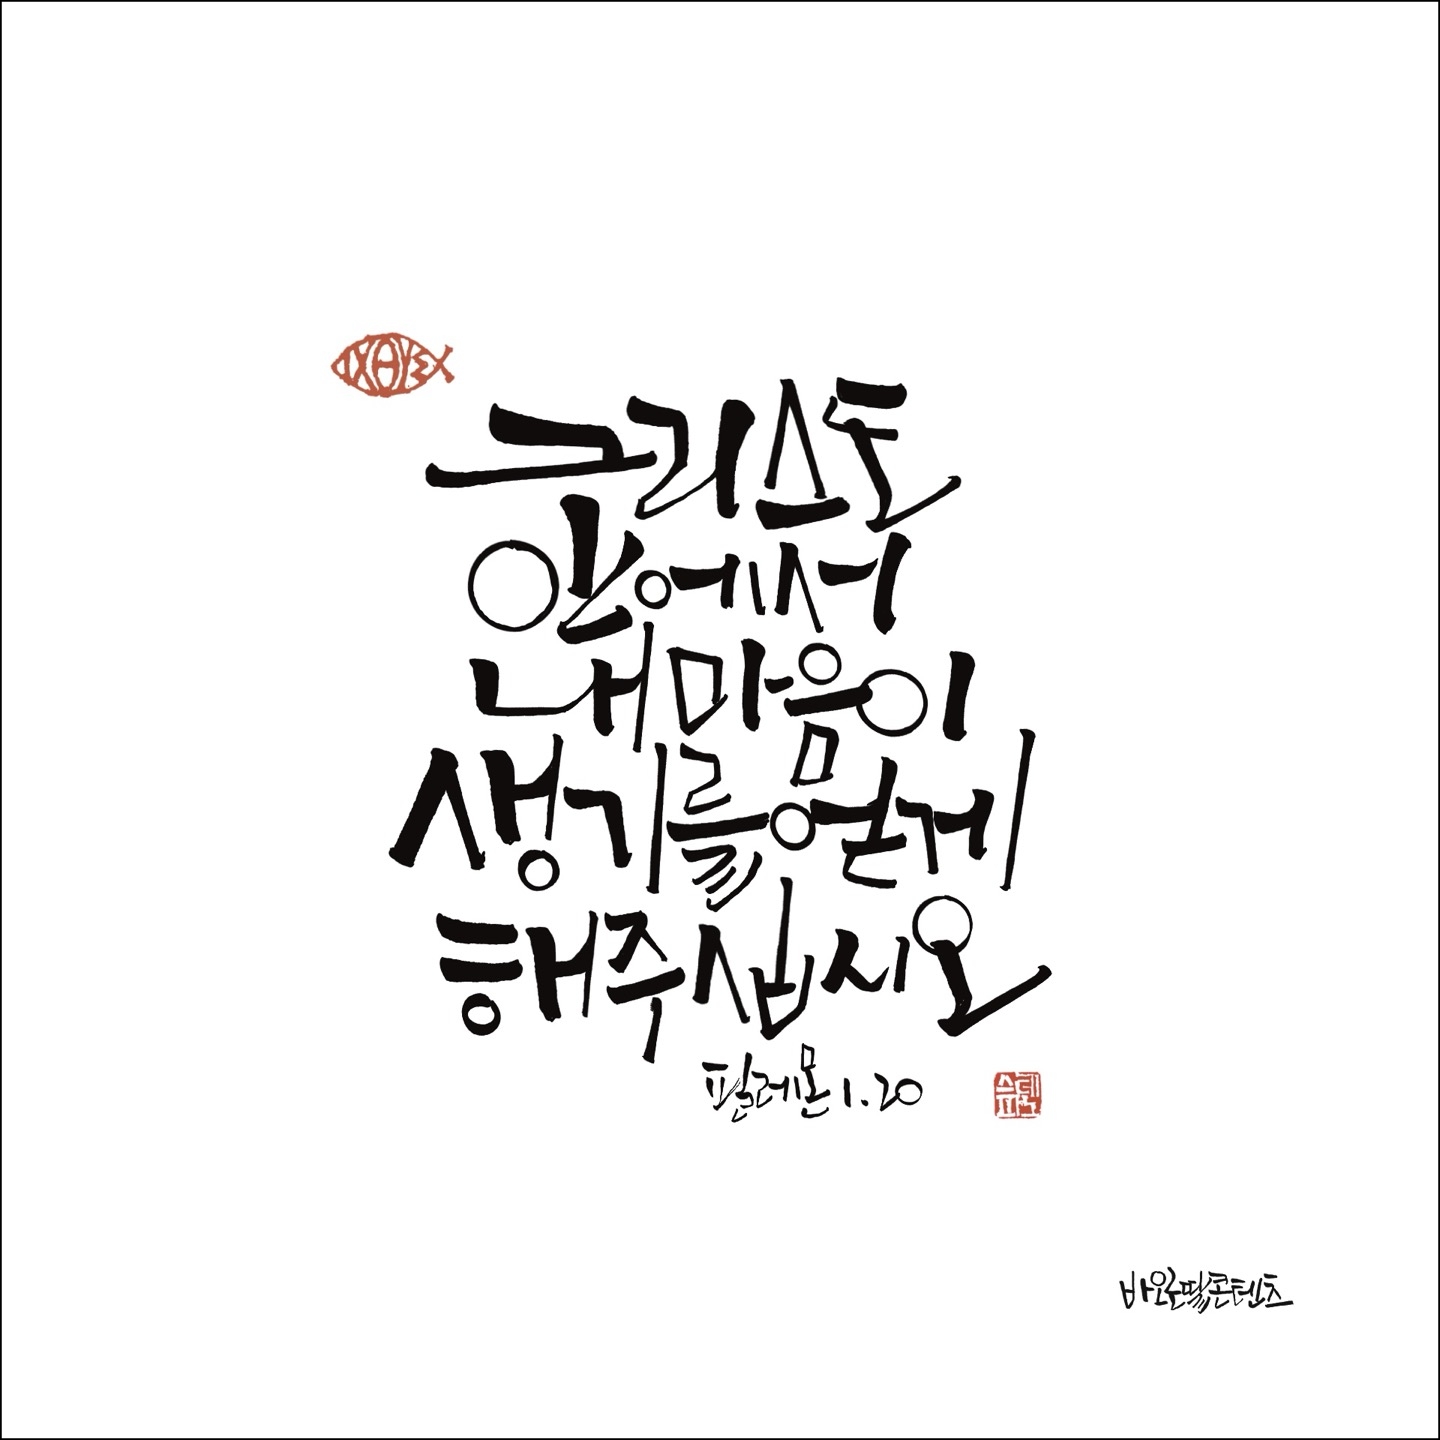 ΙΧΘΥΣ
그리스도
안에서
내 마음이
생기를 얻게
해주십시오
필레몬 1.20
바오로딸콘텐츠